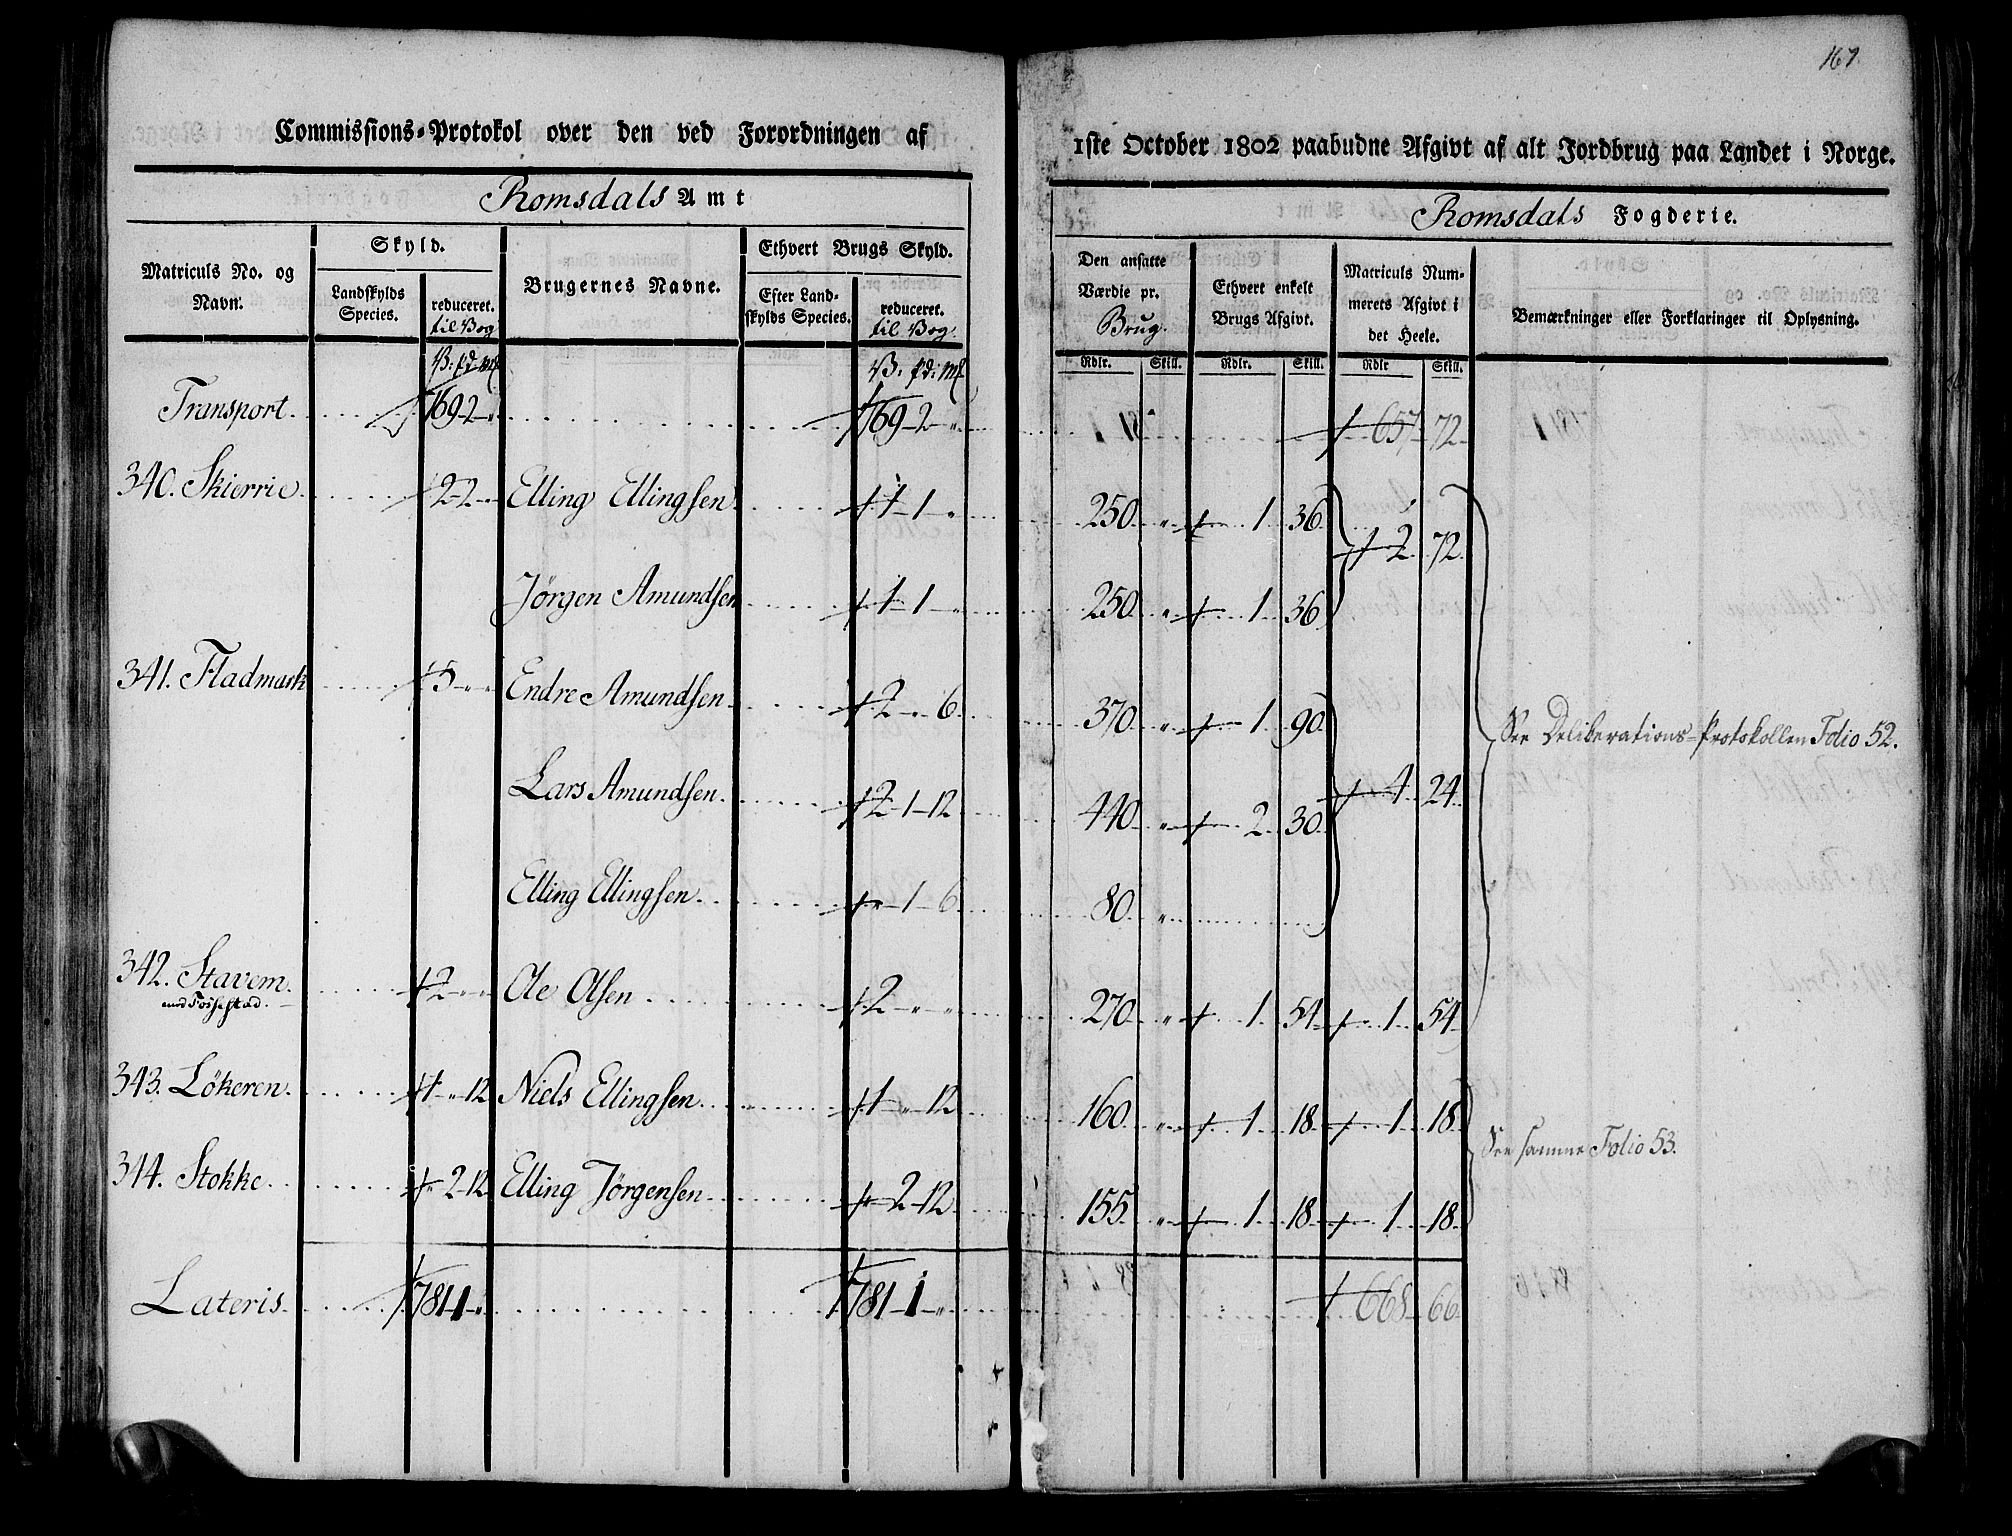 167.
Commissions-Protokol over den ved Forordningen af 1ste October 1802 paabudne Afgivt af alt Jordbrug paa Landet i Norge.
Romsdals Amt
Romsdals Fogderie.
Matriculs No. og Navn.
Skyld.
Landskylds Species.
reduceret. til Vog
Brugernes Navne.
Ethvert Brugs Skyld.
Efter Landskylds Species.
reduceret. til Vog.
Den ansatte Værdie pr. Brug.
Ethvert enkelt Brugs Afgivt.
Matriculs Nummerets Afgivt i det Heele.
Bemærkninger eller Forklaringer til Oplysning.
V. pd. mk V. pd. mk Rdlr. Skill. Rdlr. Skill. Rdlr Skill.
Transport. 769 2 " 769 2 " 657 72
340. Skierrie 2 2 " Elling Ellingsen 1 1 " 250 " 1 36 2 72
Jörgen Amundsen 1 1 " 250 " 1 36
341. Fladmark 5 " " Endre Amundsen 2 " 6 370 " 1 90 4 24
See Deliberations-Protokollen Folio 52.
Lars Amundsen 2 1 12 440 " 2 30
Elling Ellingsen " 1 6 80 "
342. Stavem 2 " " Ole Olsen 2 " " 270 " 1 54 1 54
343. Lökeren 1 " 12 Niels Ellingsen 1 " 12 160 " 1 18 1 18
See samme Folio 53.
344. Stokke " 2 12 Elling Jörgensen " 2 12 155 " 1 18 1 18
Lateris 781 1 " 781 1 " 668 66